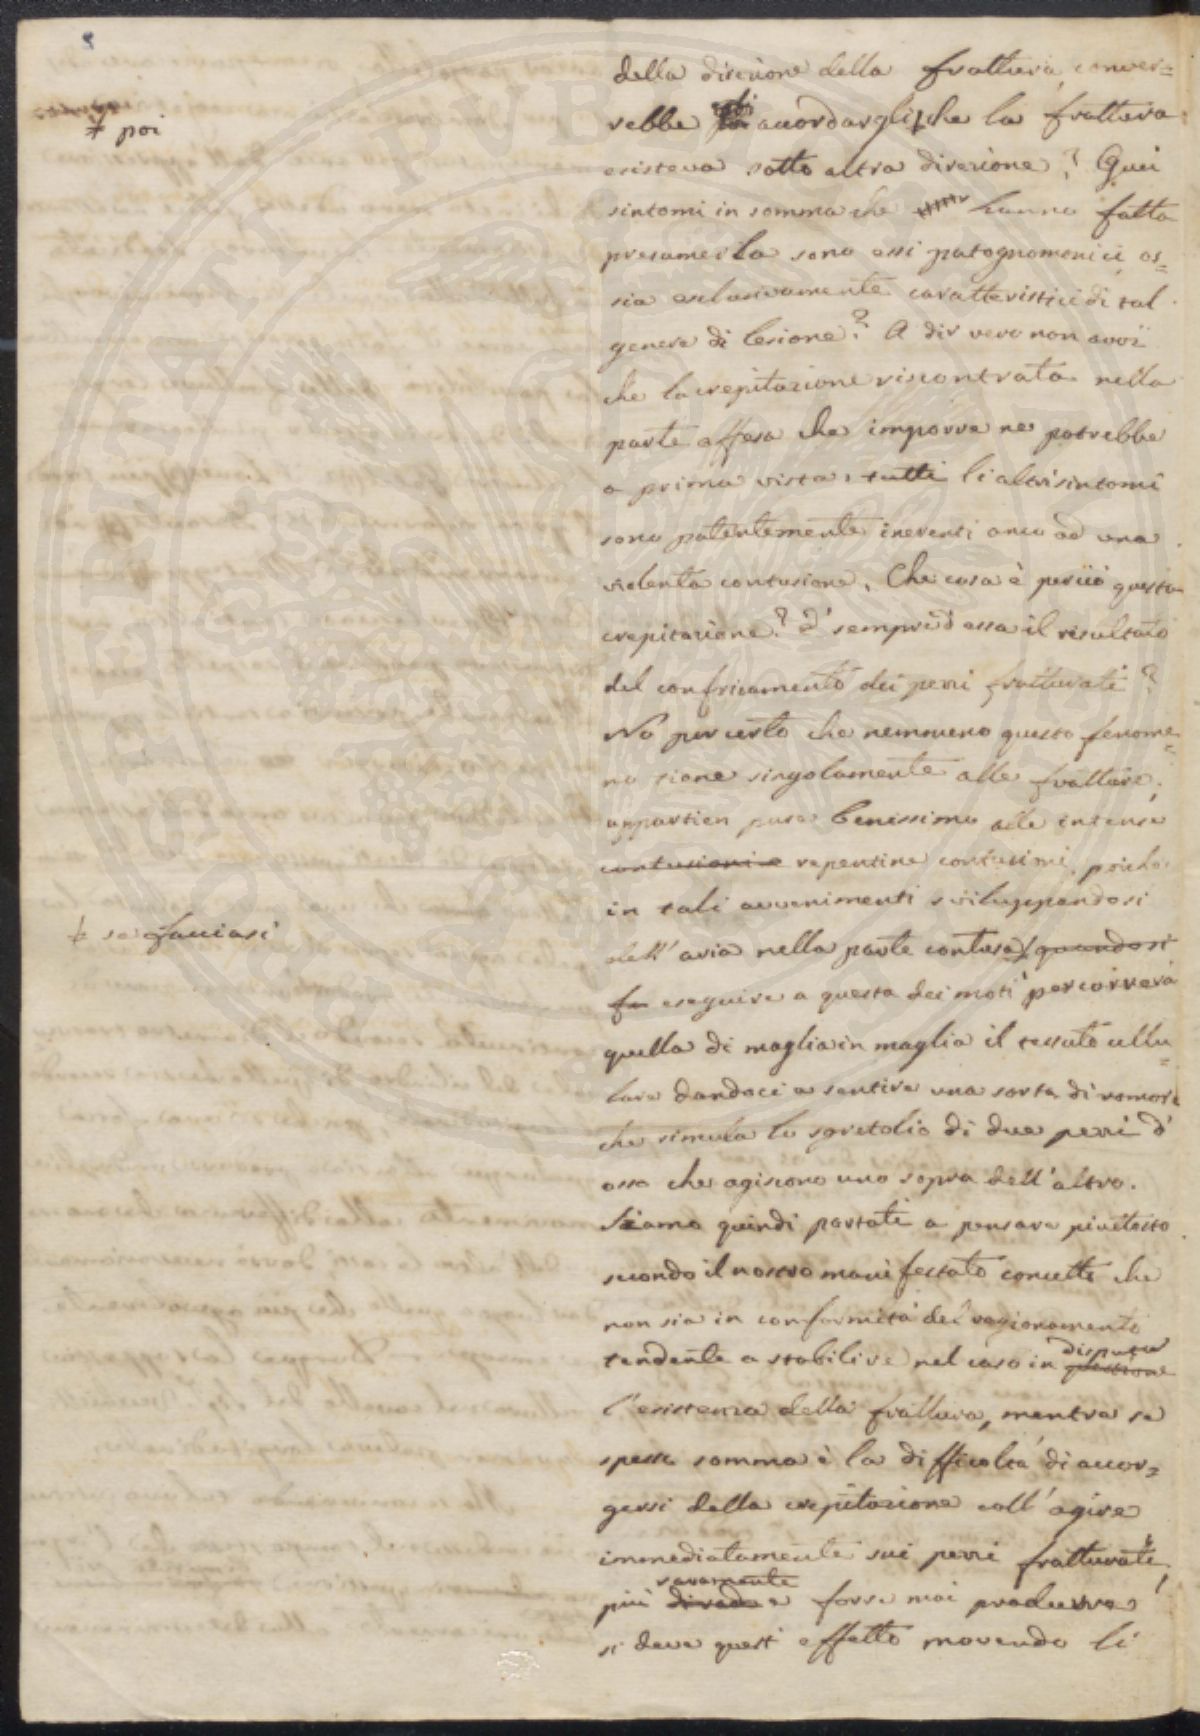 della direzione della frattura conver=
rebbe di accordargli, che la frattura
‡ poi
esisteva sotto altra direzione? Quei
sintomi in somma che hanno fatta
presumerla sono essi patognomonici os=
sia esclusivamente caratteristici di tal
genere di lesione? A dir vero non avvi
che la crepitazione riscontrata nella
parte offesa che imporre ne potrebbe
a prima vista, tutti li altri sintomi
sono patentemente inerenti anco ad una
violenta contusione. Che cosa è perciò questa
crepitazione? E' sempre d'essa il risultato
del confricamento dei pezzi fratturati?
Nò per certo che nemmeno questo fenome=
no tiene singolamente alle fratture,
appartien pure benissimo alle intense
contusioni e repentine contusioni, poiche
in tali avvenimenti sviluppandosi
‡ se facciasi
dell'aria nella parte contusa, quandosi
fa eseguire a questa dei moti percorrerà
quella di maglia in maglia il tessuto cellu=
lare dandoci a sentire una sorta di romore
che simula lo sgretolio di due pezzi d'
osso che agiscono uno sopra dell'altro.
Siamo quindi portati a pensare piuttosto
secondo il nostro manifestato concetto che
non sia in conformità del ragionamento
tendente a stabilire nel caso in disputa
l'esistenza della frattura, mentre se
spesse somma è la difficoltà di accor=
gersi della crepitazione coll'agire
immediatamente sui pezzi fratturati,
più raramente
di rado e forse mai produrre
si deve quest'effetto movendo li